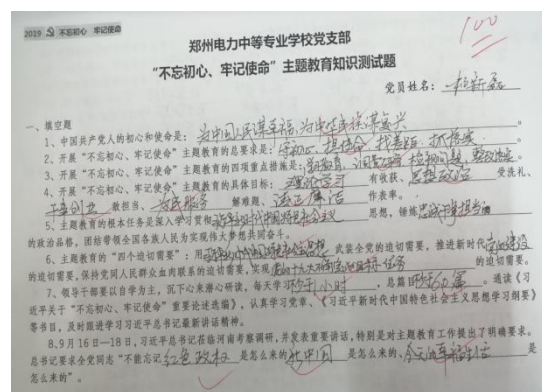 2019 不忘初心 牢记使命
100
郑州电力中等专业学校党支部
“不忘初心、牢记使命”主题教育知识测试题
党员姓名：
一、填空题
1、中国共产党人的初心和使命是：为中国人民谋幸福,为中华民族谋复兴。
2、开展“不忘初心、牢记使命”主题教育的总要求是：守初心、担使命、找差距、抓落实。
3、开展“不忘初心、牢记使命”主题教育的四项重点措施是：学习教育、调查研究 检视问题、整改落实。
4、开展“不忘初心、牢记使命”主题教育的具体目标：理论学习 有收获、思想政治 受洗礼、
干事创业 敢担当、为民服务 解难题、清正廉洁 作表率。
5、主题教育的根本任务是深入学习贯彻 新时代中国特色社会主义 思想，锤炼 忠诚干净担当
的政治品格，团结带领全国各族人民为实现伟大梦想共同奋斗。
6、主题教育的“四个迫切需要”：用 武装全党的迫切需要，推进新时代 党的建设
的迫切需要，保持党同人民群众血肉联系的迫切需要，实现 党的十九大 目标任务 的迫切需要。
7、领导干部要以自学为主，沉下心来潜心研读，每天学习 1小时，总篇 。通读《习
近平关于“不忘初心、牢记使命”重要论述选编》，认真学习党章、《习近平新时代中国特色社会主义思想学习纲要》
等书目，及时跟进学习习近平总书记最新讲话精神。
8、9月16日—18日，习近平总书记在临河南考察调研，并发表重要讲话，特别是对主题教育工作提出了明确要求。
总书记要求全党同志“不能忘记 红色政权 是怎么来的 新中国 是怎么来的、今天的幸福生活 是
怎么来的”。